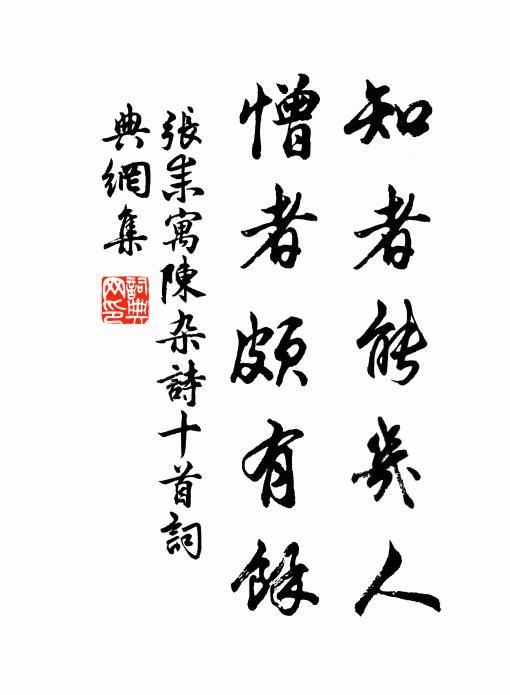 知者能幾人
憎者頗有餘
張耒寓陳杂詩十首詞
典網集
詞典
网印